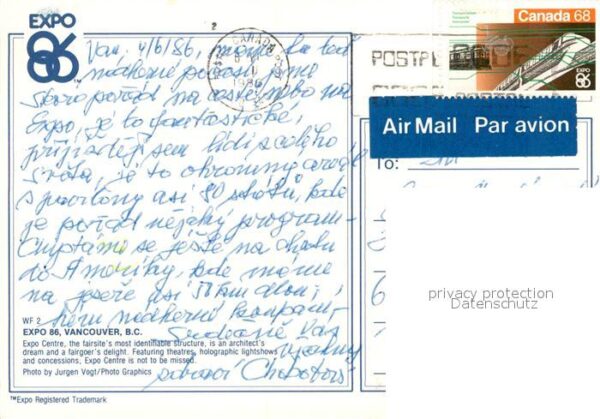 EXPO
86
TM
2
CANADA
1986
POSTAL
Canada 68
EXPO
86
Air Mail Par avion
To:
Van. 4/6/86, máme tu teď
nádherné počasí, jsme
skoro pořád na
Expo, je to fantastické,
přijíždějí sem lidi z celého
světa, je to ohromný areál
s pavilony asi 80 států, kde
je pořád nějaký program
Chystáme se ještě na chatu
do Ameriky, kde máme
na jezeře asi 50 km
nádherné
Srdečně Vás
zdraví
WF 2
EXPO 86, VANCOUVER, B.C.
Expo Centre, the fairsite's most identifiable structure, is an architect's
dream and a fairgoer's delight. Featuring theatres, holographic lightshows
and concessions, Expo Centre is not to be missed.
Photo by Jurgen Vogt/Photo Graphics
™Expo Registered Trademark
privacy protection
Datenschutz